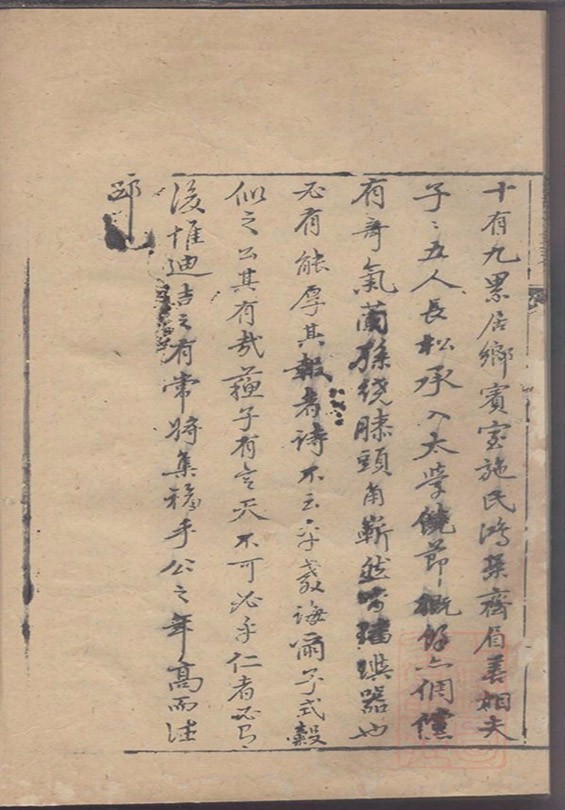 十有九累居鄉賓室施氏鴻案齊眉善相夫
子〻五人長松承入太學饒節概餘亦倜儻
有奇氣蘭孫绕膝頭角嶄然皆璠璵器也
必有能厚其報者詩不云乎教誨爾子式穀
似之公其有哉蘓子有言天不可必乎仁者必有
後惟迪吉之有常將集福乎公之年高而法